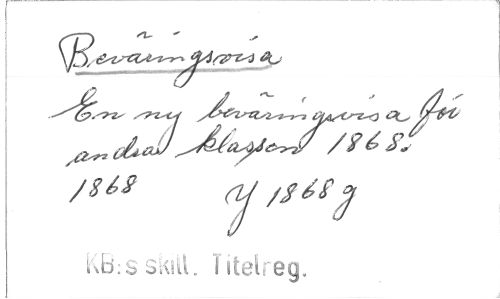 Beväringsvisa
En ny beväringsvisa för
andra klassen 1868.
1868 Y 1868 g
KB:s skill. Titelreg.